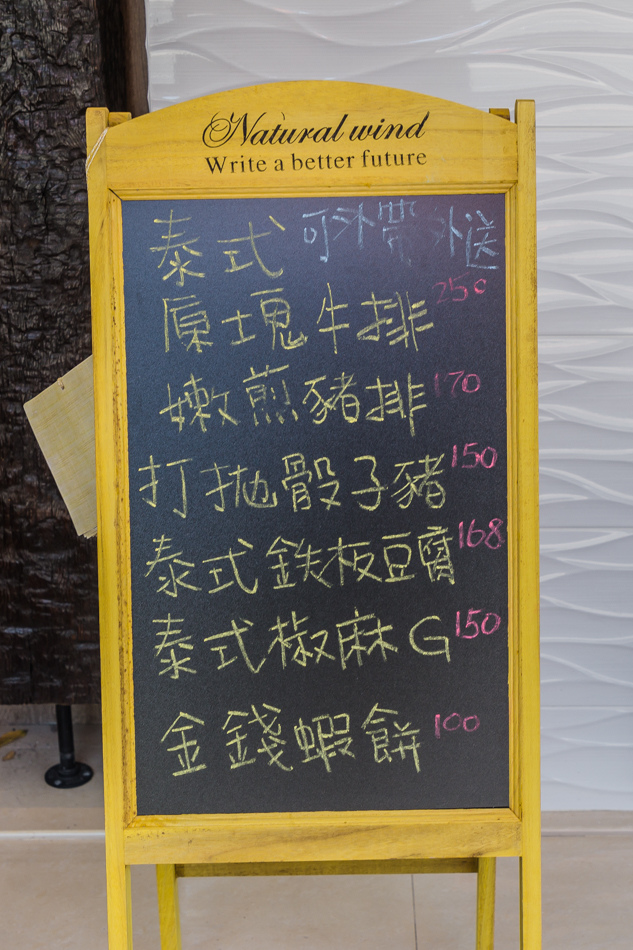 Natural wind
Write a better future
泰式 可外帶 外送
原塊牛排 250
嫩煎豬排 170
打拋骰子豬 150
泰式鉄板豆腐 168
泰式椒麻G 150
金錢蝦餅 100